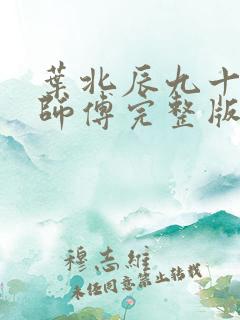 葉北辰九十
師傅完整版
穆志維
未经同意禁止转载